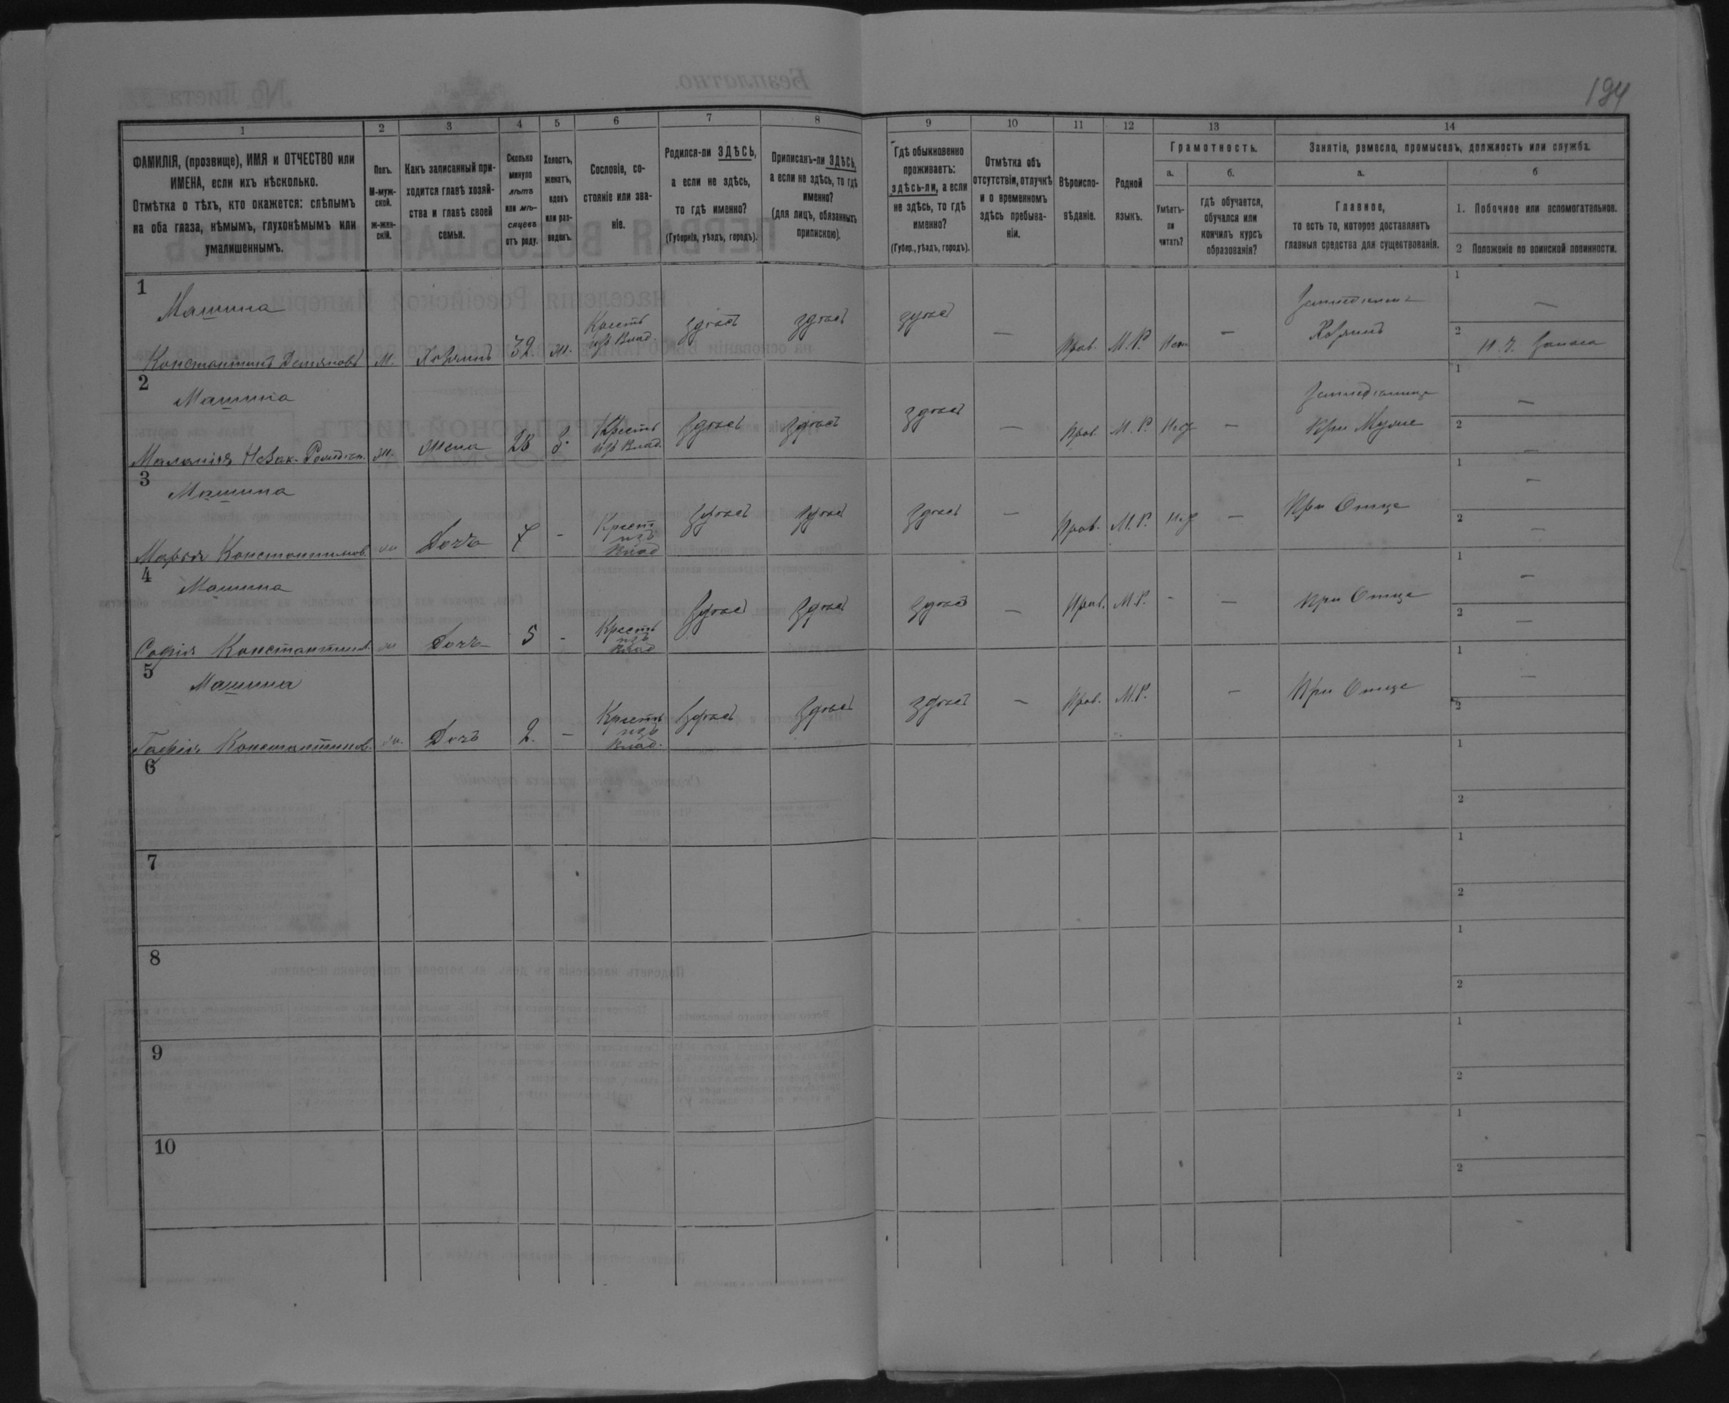 194
1 2 3 4 5 6 7 8 9 10 11 12 13 14
ФАМИЛІЯ, (прозвище), ИМЯ и ОТЧЕСТВО или
ИМЕНА, если ихъ нѣсколько.
Отмѣтка о тѣхъ, кто окажется: слѣпымъ
на оба глаза, нѣмымъ, глухонѣмымъ или
умалишеннымъ.
Полъ.
М-муж-
ской.
ж-жен-
скій.
Какъ записанный при-
ходится главѣ хозяй-
ства и главѣ своей
семьи.
Сколько
минуло
лѣтъ
или мѣ-
сяцевъ
отъ роду.
Холостъ,
женатъ,
вдовъ
или раз-
веденъ.
Сословіе, со-
стояніе или зва-
ніе.
Родился-ли ЗДѢСЬ,
а если не здѣсь,
то гдѣ именно?
(Губернія, уѣздъ, городъ).
Приписанъ-ли ЗДѢСЬ,
а если не здѣсь, то гдѣ
именно?
(для лицъ, обязанныхъ
припискою).
Гдѣ обыкновенно
проживаетъ:
здѣсь-ли, а если
не здѣсь, то гдѣ
именно?
(Губер., уѣздъ, городъ).
Отмѣтка объ
отсутствіи, отлучкѣ
и о временномъ
здѣсь пребыва-
ніи.
Вѣроиспо-
вѣданіе.
Родной
языкъ.
Грамотность.
а.
Умѣетъ-
ли
читать?
б.
гдѣ обучается,
обучался или
кончилъ курсъ
образованія?
Занятіе, ремесло, промыселъ, должность или служба.
а.
Главное,
то есть то, которое доставляетъ
главныя средства для существованія.
б
1. Побочное или вспомогательное.
2 Положеніе по воинской повинности.
1
Машина
Константинъ м. Хозяинъ 32 ж. Крест. изъ Влад. здѣсь здѣсь здѣсь — Прав. М.Р. — Хозяинъ
1 —
2 запаса
2
Машина
Маланія ж. жена 28 з. Крестъ изъ Влад. здѣсь здѣсь здѣсь — Прав. М.Р. — При Мужѣ
1 —
2 —
3
Машина
Марія Константинов. ж Дочь 7 — Крест изъ Влад здѣсь здѣсь здѣсь — Прав. М.Р. — При Отцѣ
1 —
2 —
4
Машина
Софія Константинов. ж Дочь 5 — Крестъ изъ Влад здѣсь здѣсь здѣсь — Прав. М.Р. - — При Отцѣ
1 —
2 —
5
Машина
Константинов. ж. Дочь 2 — Крестъ изъ Влад. здѣсь здѣсь здѣсь — Прав. М.Р. — При Отцѣ
1 —
2
6
1
2
7
1
2
8
1
2
9
1
2
10
1
2